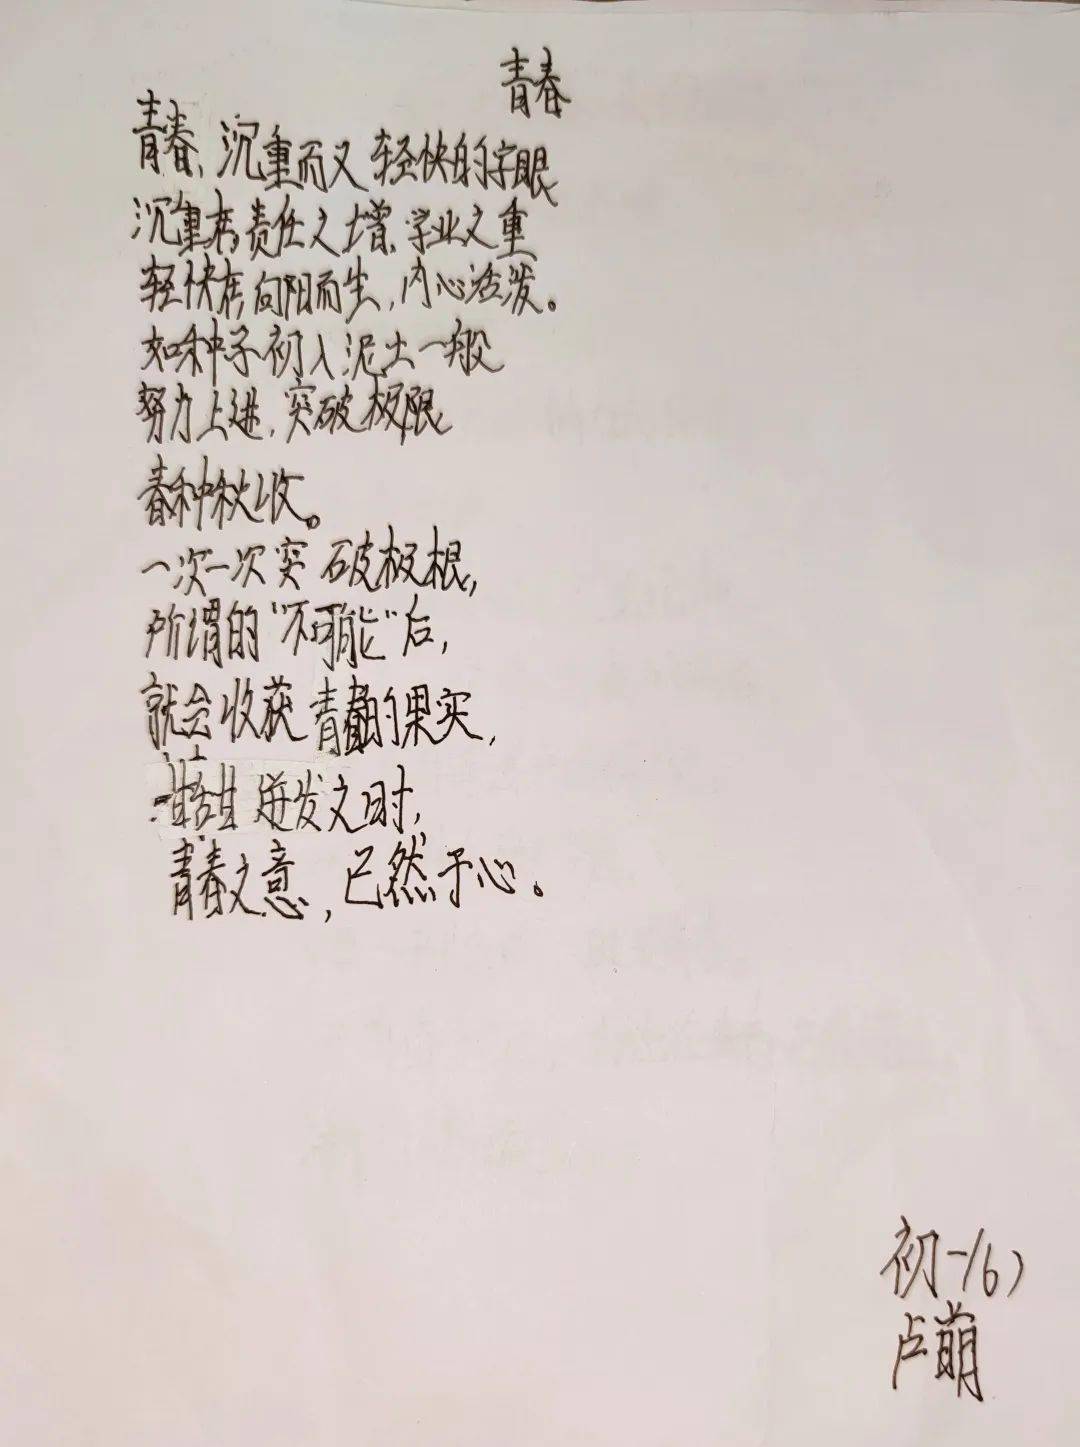 青春
青春,沉重而又轻快的字眼
沉重在责任之增,学业之重
轻快在,向阳而生,内心活泼。
如种子初入泥土一般
努力上进,突破极限
春种秋收。
一次一次突破极根,
所谓的“不可能”后,
就会收获青春的果实,
甘甜迸发之时,
青春之意,已然于心。
初一(6)
卢萌